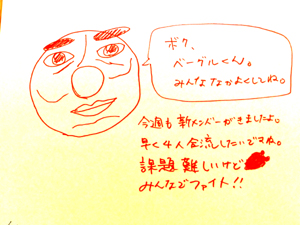 ボク、
ベーグルくん。
みんななかよくしてね。
今週も新メンバーがきましたよ。
早く4人合流したいですね。
課題難しいけど
みんなでファイト!!